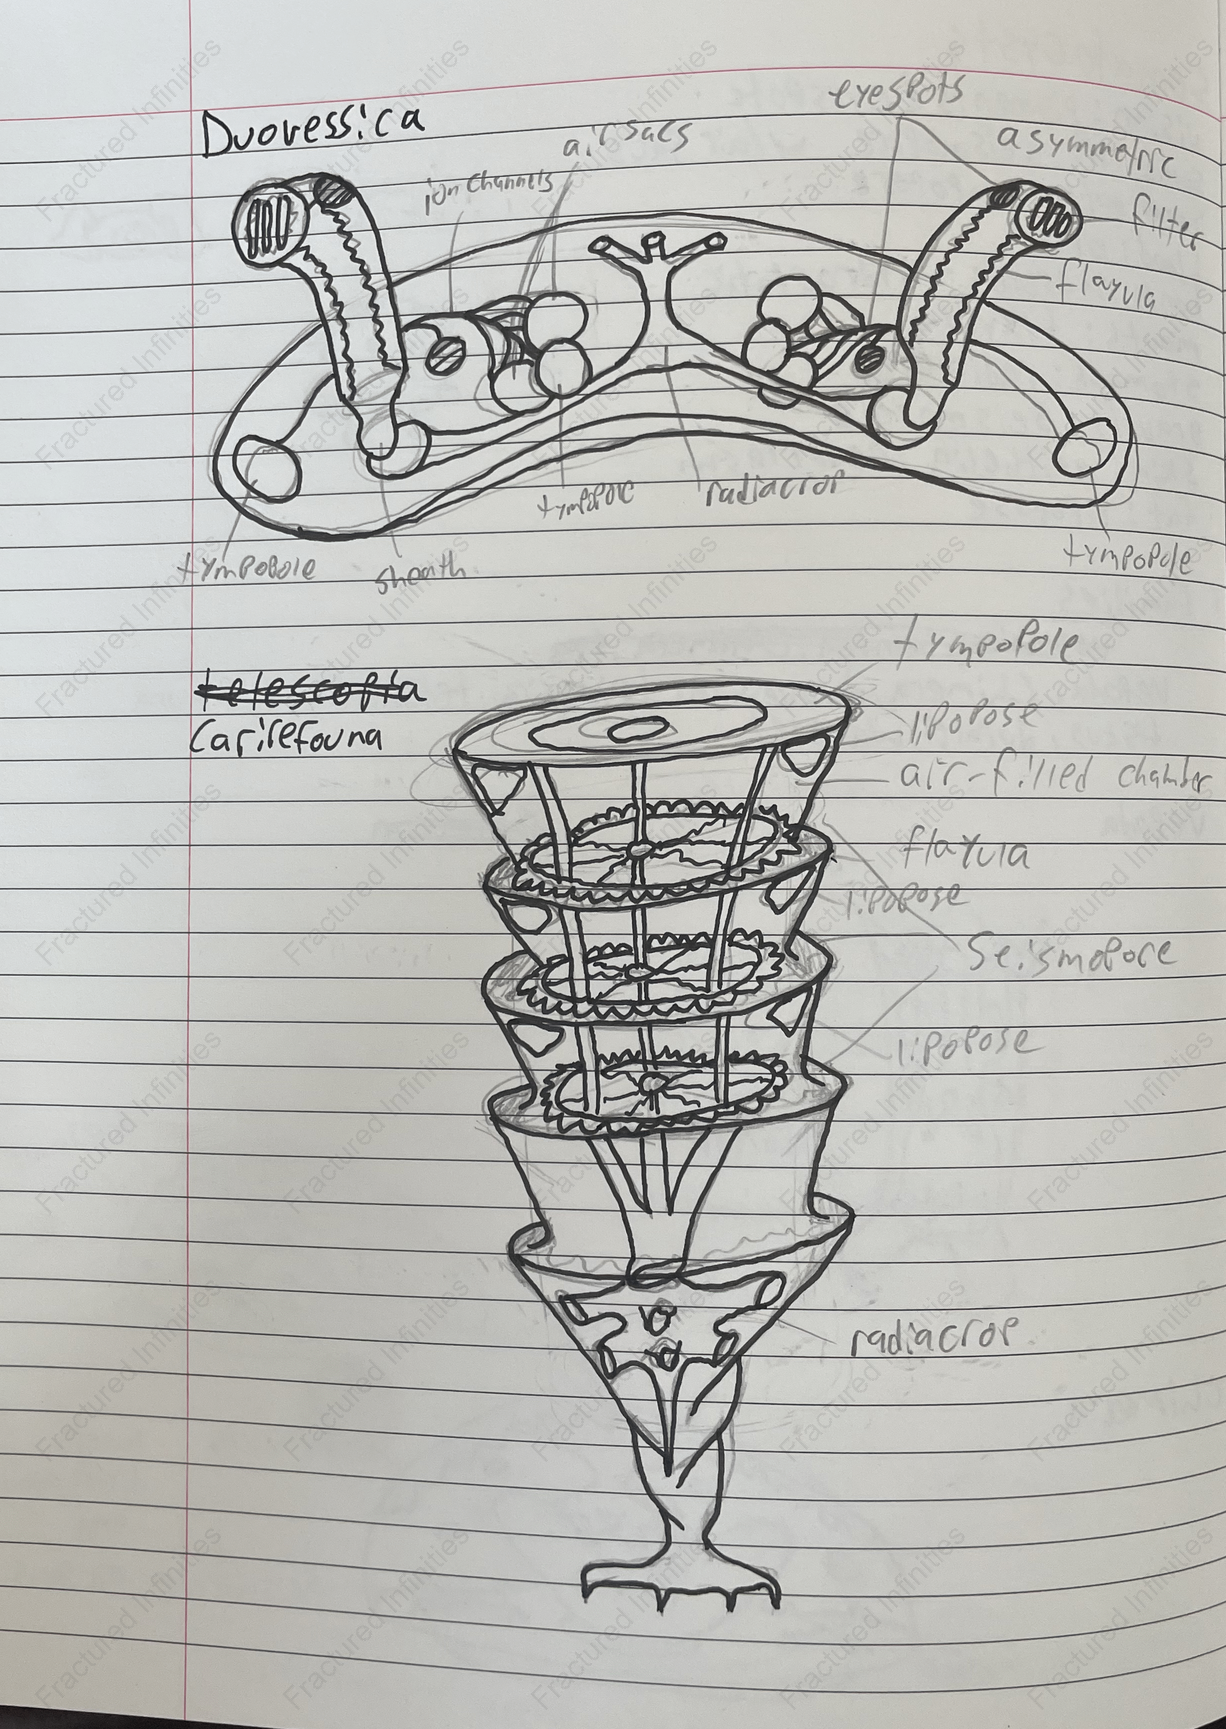 Duoressica
eyespots
air sacs
asymmetric
filter
ion channels
flayula
tympopole
radiacrop
tympopole
sheath
tympopole
tympopole
telescopia
Carirefouna
lipopose
air-filled chamber
flayula
lipopose
Seismopore
lipopose
radiacrop
Fractured Infinities